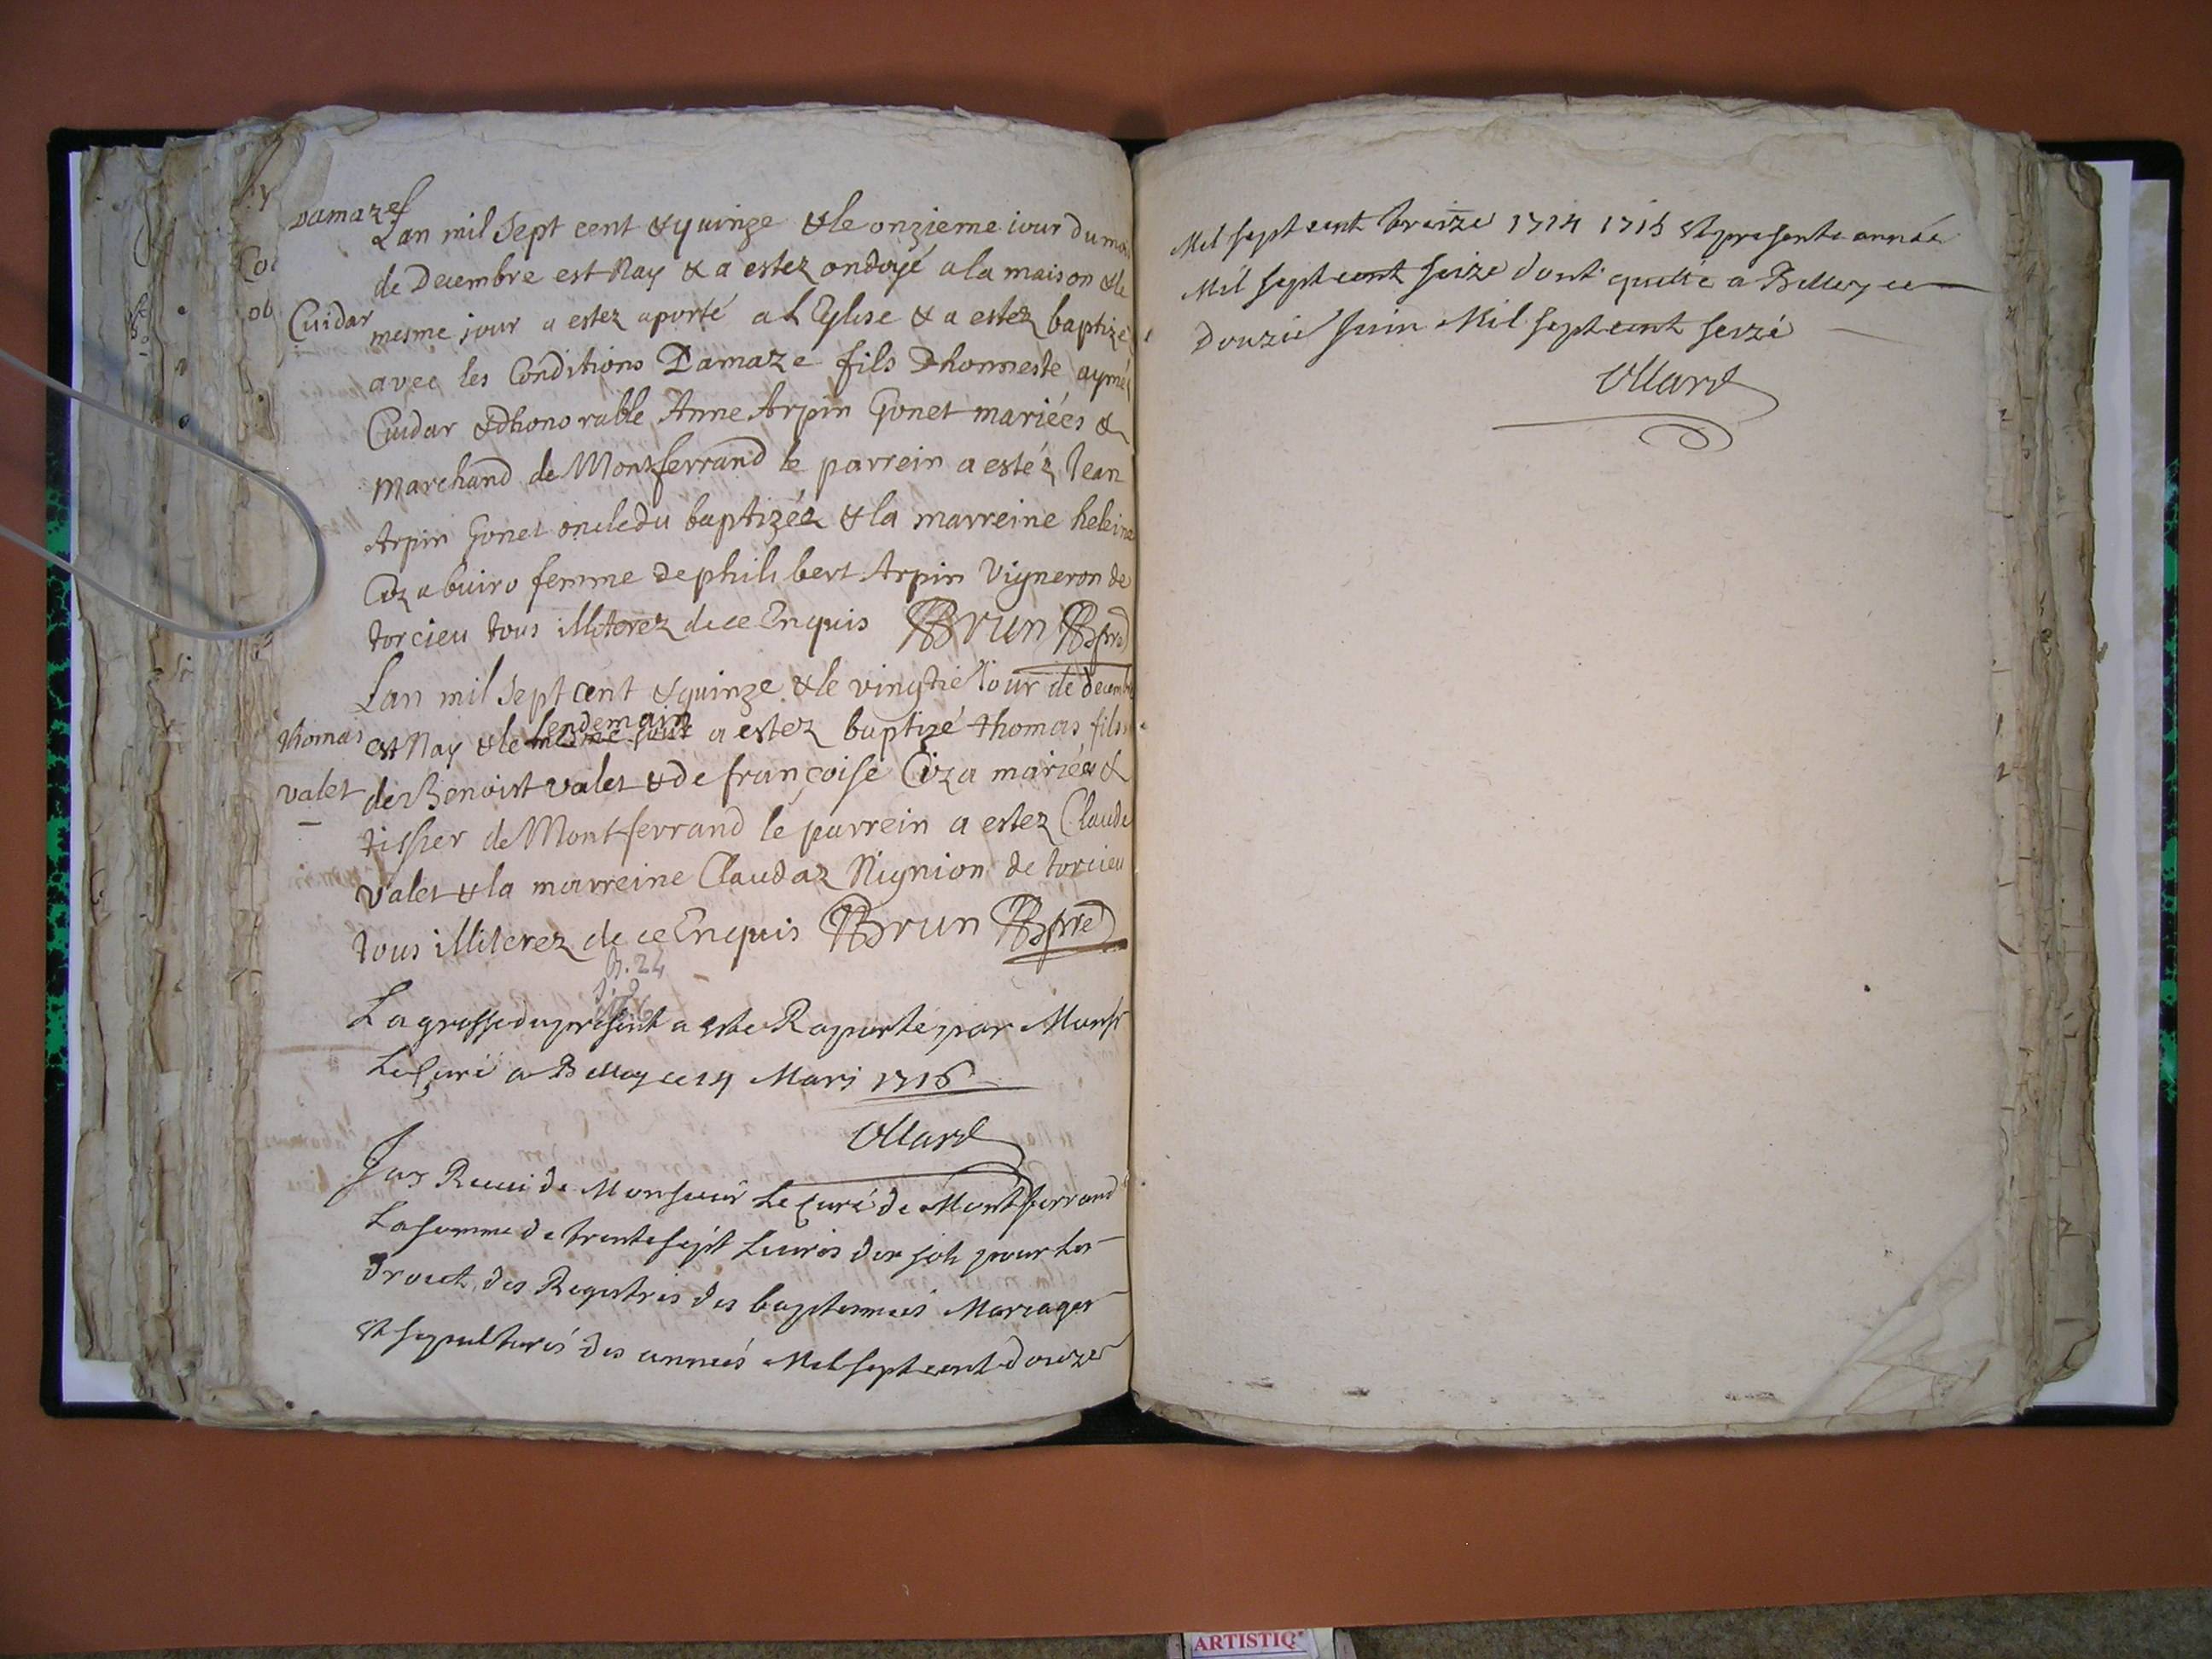 Damaze
Lan mil sept cent & quinze & le onzieme iour du mo
de Decembre est Nay & a estez ondoyé a la maison & le
Cuidar
mesme jour a estez aporté a l Eglise & a estez baptizé
avec les Conditions Damaze fils Dhonneste aymé
Cuidar & dhonorable Anne Arpin Gonet mariées &
marchand de Montferrand le parrein a estéz Jean
Arpin Gonet oncle du baptizéz & la marreine heleine
Coz femme de philibert Arpin Vigneron de
torcieu tous illiterez de ce Enquis Brun
Lan mil sept cent & quinze & le vingtie Iour de decembre
thomas
est Nay & le mesme jour lendemain a estez baptizé thomas fils
valet
de Benoist valet & de françoise Coza mariées &
tissier de Montferrand le parrein a estez Claude
Valet & la marreine Claudaz Nignion de torcieu
tous illiterez de ce Enquis Brun
B. 24
La grosse du present a este Raporté par Monsr
Le Curé a Belley ce 14 Mars 1716
Ollard
Jay Receu de Monsieur Le Curé de Montferrand
La somme de trente sept Livres dix sols pour les
droits des Registres des baptesmes Mariages
et sepultures des années Mil sept cent douze
Mil sept cent treize 1714 1715 et presente année
Mil sept cent seize dont quitte a Belley ce
douzie Juin Mil sept cent seizé
Ollard
ARTISTIQ